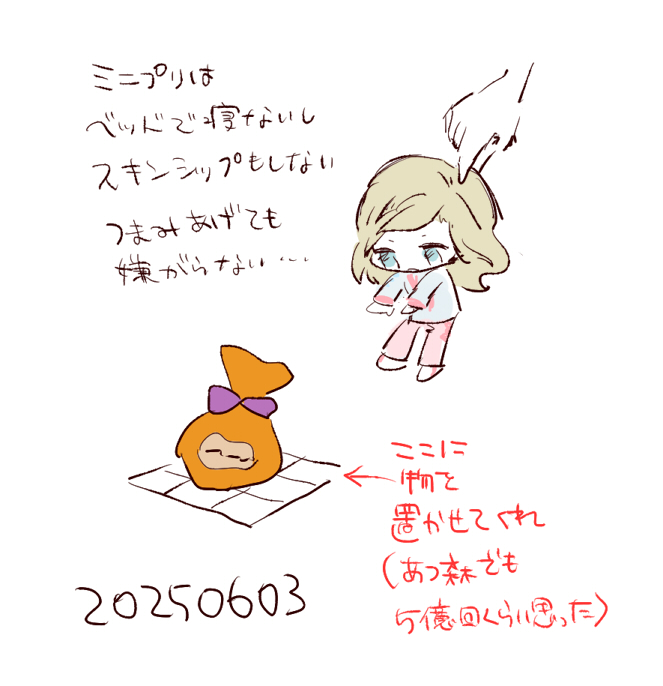 ミニプリは
ベッドで寝ないし
スキンシップもしない
つまみあげても
嫌がらない…
ここに
物を
置かせてくれ
(あつ森でも
5億回くらい思った)
20250603